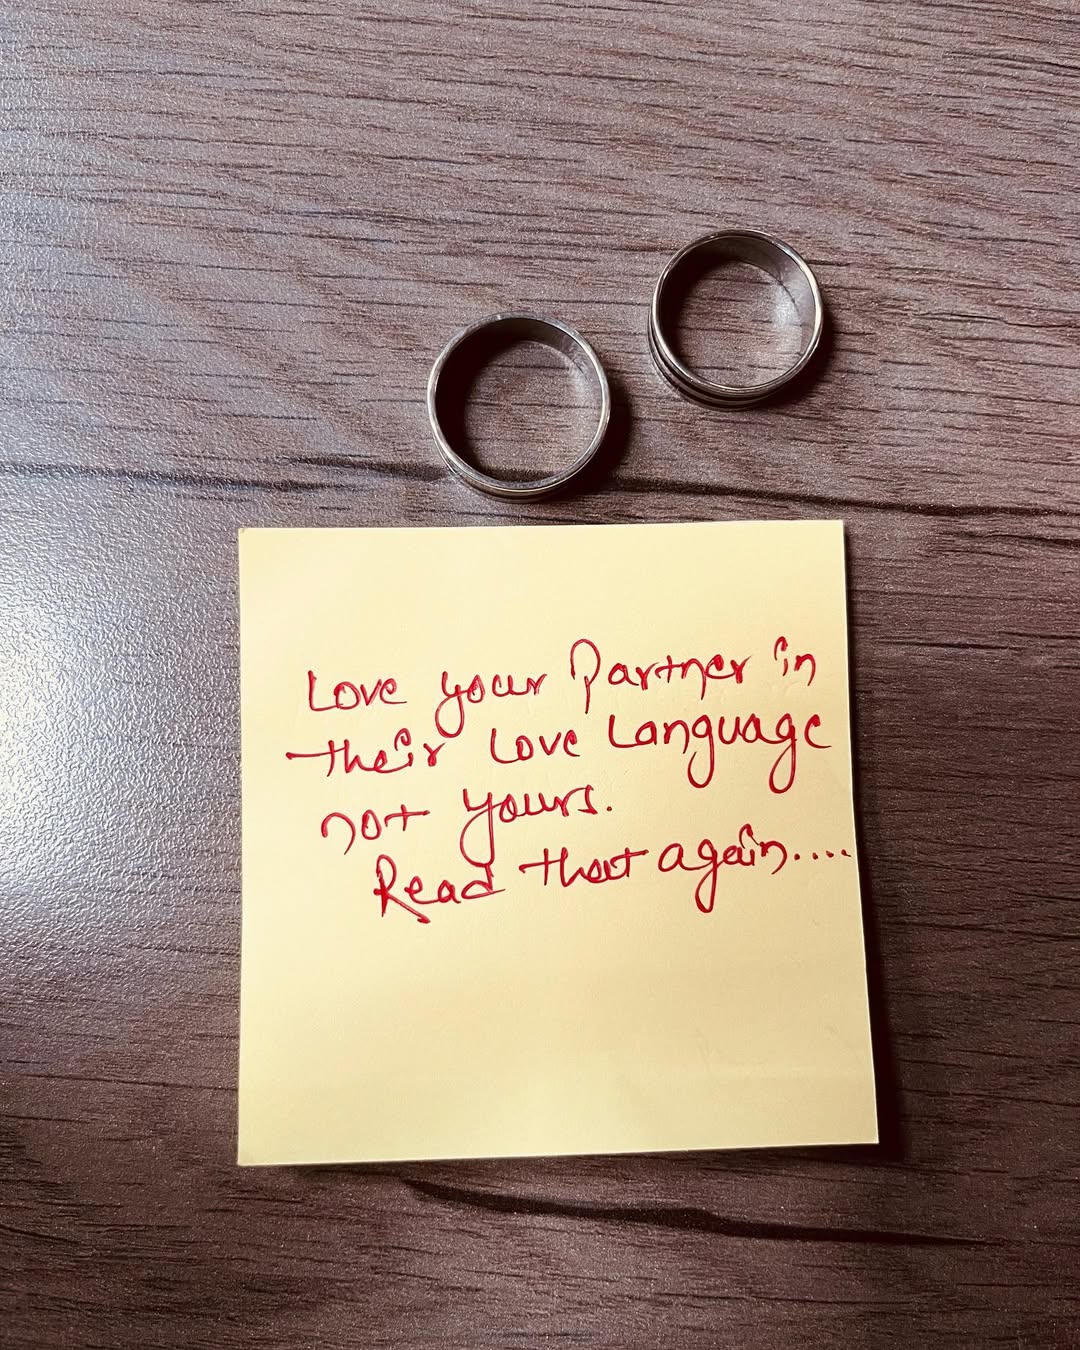 Love your Partner in
their Love Language
not yours.
Read that again....